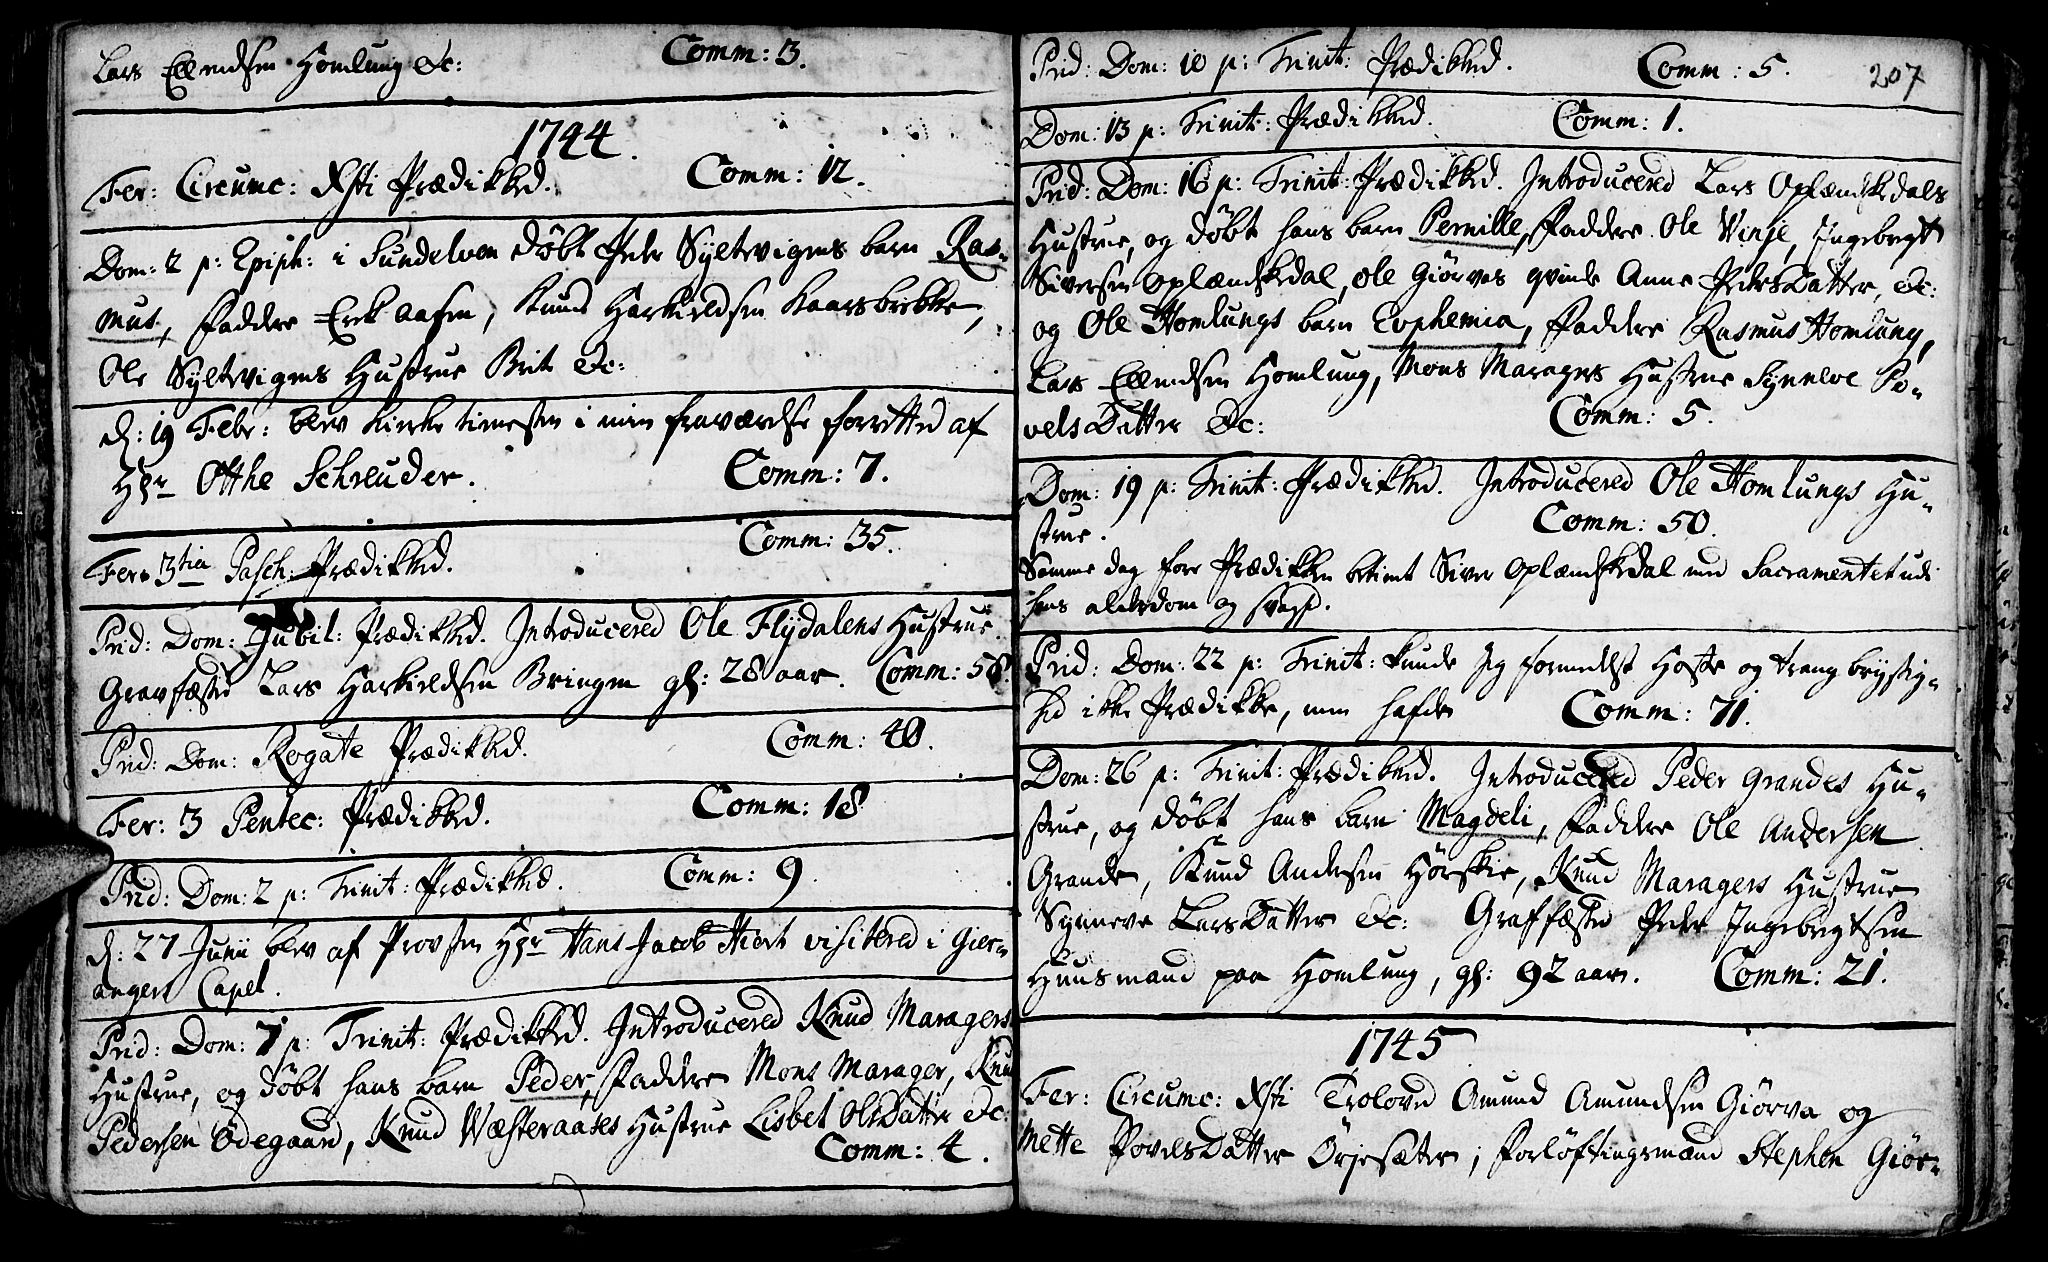 Lars Ellendsen Homlung &c: Comm: 3.
1744.
Fer: Circumc: Xsti Prædikked. Comm: 12.
Dom: 2 p: Epiph: i Sundelven døbt Peder Syltevigens barn Ras-
mus, Faddere Erik Aasen, Knud Harkieldsen Kaarsbrekke,
Ole Syltevigens Hustrue Brit &c:
d: 19 Febr: blev kirke tienesten i min fraværelse forrettet af
Hr Otthe Schreuder. Comm: 7.
Fer: 3tia Pasch: Prædikked. Comm: 35.
Prid: Dom: Jubil: Prædikked. Introducered Ole Flydalens Hustrue.
Gravfæsted Lars Harkieldsen Bringen gl: 28 aar. Comm: 58.
Prid: Dom: Rogate Prædikked. Comm: 40.
Fer: 3 Pentec: Prædikked. Comm: 18
Prid: Dom: 2 p: Trinit: Prædikked. Comm: 9.
d: 27 Junii blev af Provsten Hr Hans Jacob Hiort visitered i Gier-
angers Capel.
Prid: Dom: 7 p: Trinit: Prædikked. Introducered Knud Maragers
Hustrue, og døbt hans barn Peder, Faddere Mons Marager, Knud
Pedersen Ødegaard, Knud Wæsteraases Hustrue Lisbet OlsDatter &c:
Comm: 4.
Prid: Dom: 10 p: Trinit: Prædikked. Comm: 5. 207
Dom: 13 p: Trinit: Prædikked. Comm: 1.
Prid: Dom: 16 p: Trinit: Prædikked. Introducered Lars Oplændskedals
Hustrue, og døbt hans barn Pernille, Faddere Ole Vinje, Ingebrigt
Siversen Oplændskedal, Ole Giørvas qvinde Anne PedersDatter, &c:
og Ole Homlungs barn Euphemia, Faddere Rasmus Homlung,
Lars Ellendsen Homlung, Mons Maragers Hustrue Synneve Po-
velsDatter &c: Comm: 5.
Dom: 19 p: Trinit: Prædikked. Introducered Ole Homlungs Hu-
strue. Comm: 50.
Samme dag fore Prædikken betient Siver Oplændskedal med Sacramentet udi
hans alderdom og svaghed.
Prid: Dom: 22 p: Trinit: kunde jeg formedelst Hoste og trangbrystig-
hed ikke Prædikke, men hafde Comm: 71.
Dom: 26 p: Trinit: Prædikked. Introducered Peder Grandes Hu-
strue, og døbt hans barn Magdeli, Faddere Ole Andersen
Grande, Knud Andersen Hørskie, Knud Maragers Hustrue
Synneve LarsDatter &c: Graffæsted Peder Ingebrigtsen
Huusmand paa Homlung, gl: 92 aar. Comm: 21.
1745
Fer: Circumc: Xsti Troloved Amund Amundsen Giørva og
Mette PovelsDatter Ørjesæter; Forløftingsmænd Stephen Giør-